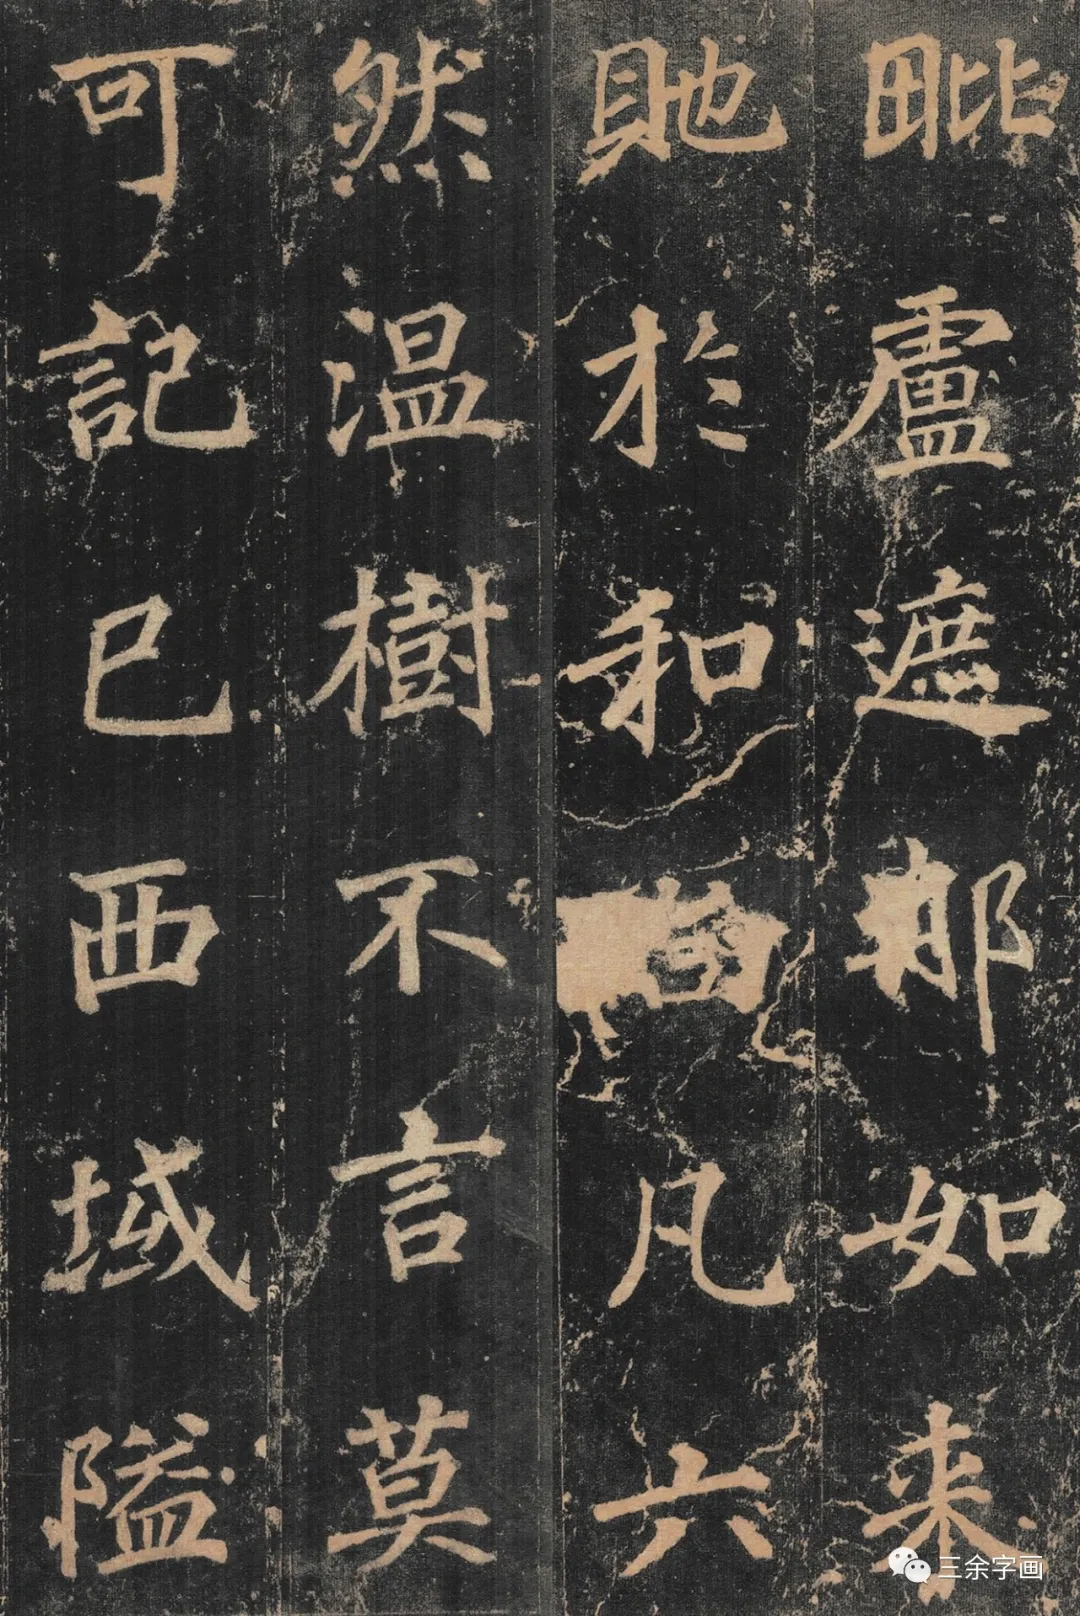 毗盧遮那如来
貤於和凡六
然温樹不言莫
可記巳西域隘
三余字画